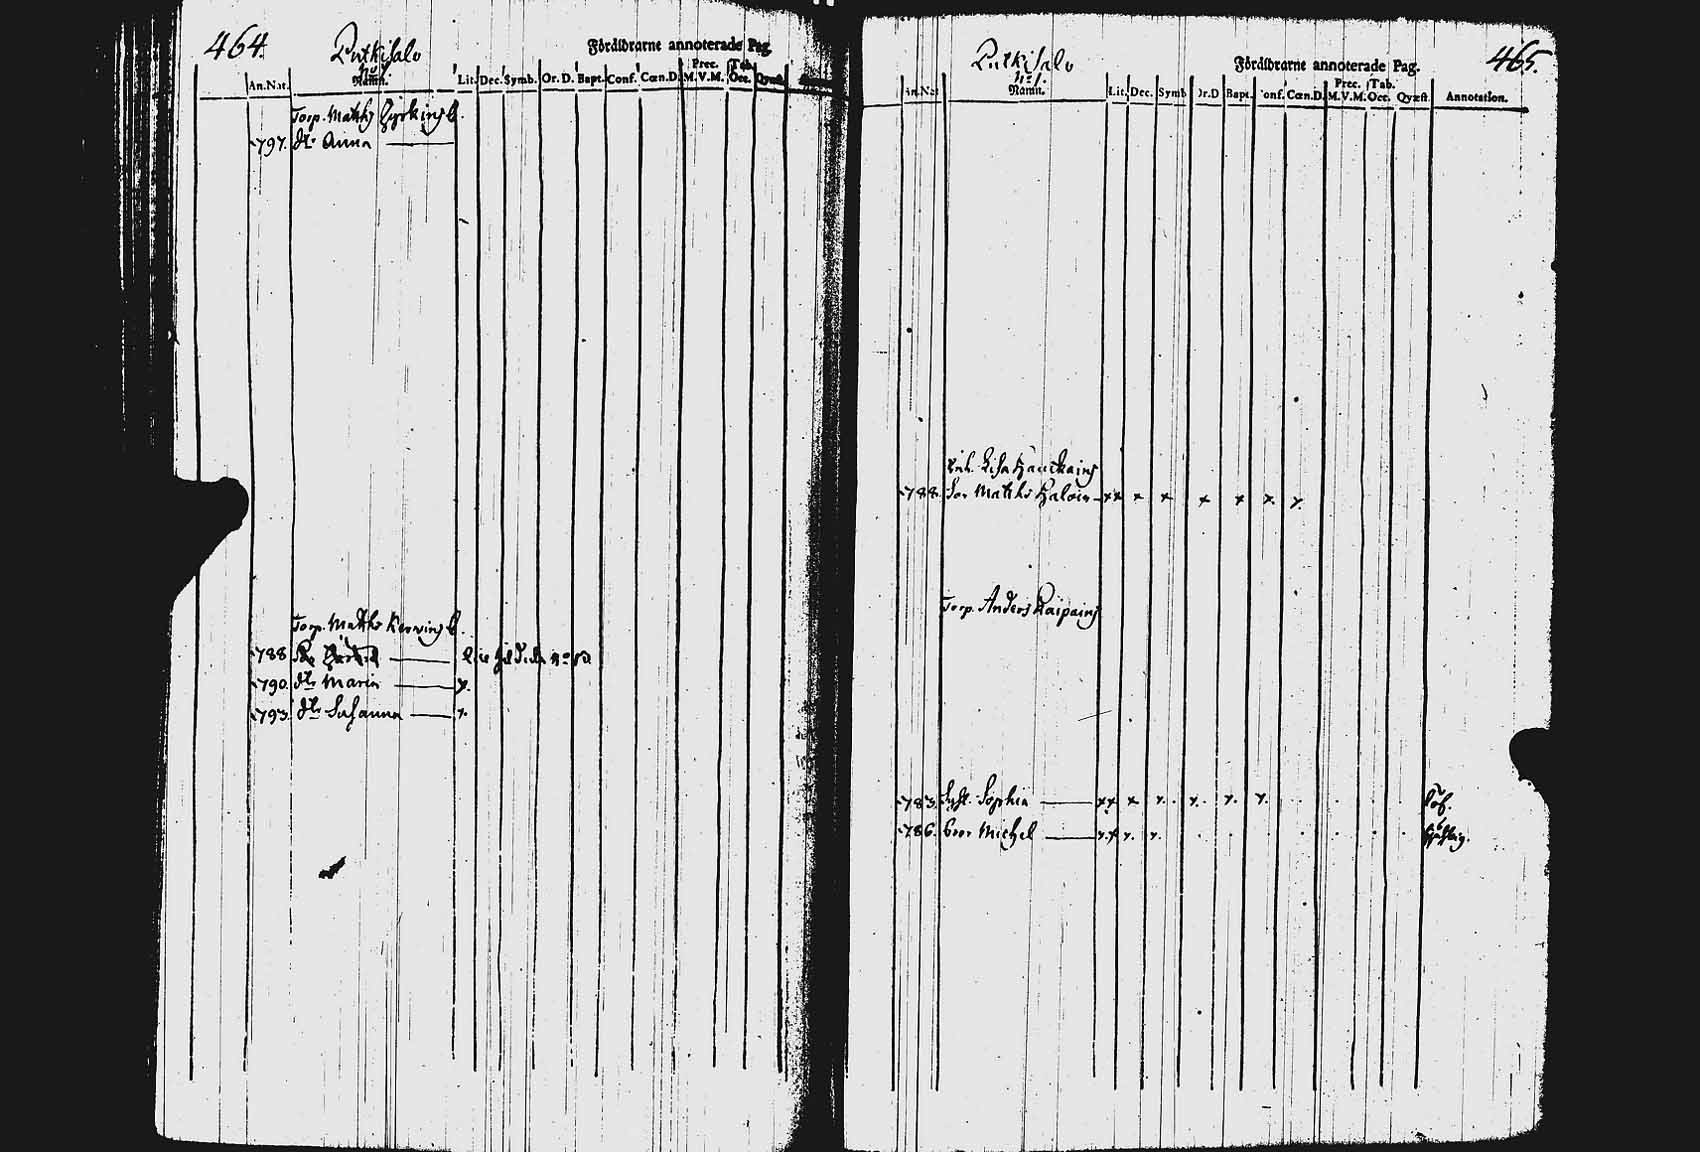 464.
Putkisalo
No
Föräldrarne annoterade Pag.
An.Nat.
Namn.
Lit. Dec. Symb. Or. D. Bapt. Conf. Cœn.D. Prec. M.V.M. Tab. Oec. Quæst.
Torp. Matths
797. dtr Anna
Torp. Matths Kervinj b.
788
790. dtr Maria x.
793. dtr Susanna x.
465.
Putkisalo
No 1.
Föräldrarne annoterade Pag.
An.Nat
Namn.
Lit. Dec. Symb Or.D Bapt. Conf. Cœn.D. Prec. M.V.M. Tab. Oec. Qyæst. Annotation.
Inh. Lisa Hauckainj
788. Son Matths xx x x x x x x.
Torp. Anders Kaipainj
783. Syst. Sophia xx x x. x. x. x.
786. bror Michel x.x x. x.